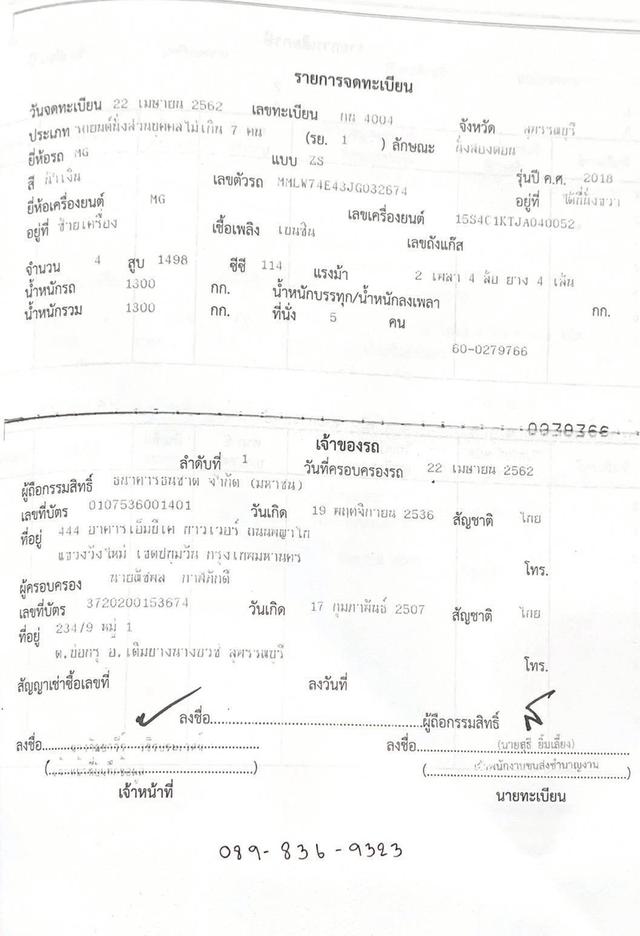 รายการจดทะเบียน
วันจดทะเบียน 22 เมษายน 2562 เลขทะเบียน กน 4004 จังหวัด สุพรรณบุรี
ประเภท รถยนต์นั่งส่วนบุคคลไม่เกิน 7 คน (รย. 1 ) ลักษณะ นั่งสองตอน
ยี่ห้อรถ MG แบบ ZS รุ่นปี ค.ศ. 2018
สี น้ำเงิน เลขตัวรถ MMLW74E43JG032674 อยู่ที่ ใต้ที่นั่งขวา
ยี่ห้อเครื่องยนต์ MG เลขเครื่องยนต์ 15S4C1KTJA040052
อยู่ที่ ซ้ายเครื่อง เชื้อเพลิง เบนซิน เลขถังแก๊ส
จำนวน 4 สูบ 1498 ซีซี 114 แรงม้า 2 เพลา 4 ล้อ ยาง 4 เส้น
น้ำหนักรถ 1300 กก. น้ำหนักบรรทุก/น้ำหนักลงเพลา กก.
น้ำหนักรวม 1300 กก. ที่นั่ง 5 คน
60-0279766
เจ้าของรถ
ลำดับที่ 1 วันที่ครอบครองรถ 22 เมษายน 2562
ผู้ถือกรรมสิทธิ์ ธนาคารธนชาต จำกัด (มหาชน)
เลขที่บัตร 0107536001401 วันเกิด 19 พฤศจิกายน 2536 สัญชาติ ไทย
ที่อยู่ 444 อาคารเอ็มบีเค ทาวเวอร์ ถนนพญาไท
แขวงวังใหม่ เขตปทุมวัน กรุงเทพมหานคร โทร.
ผู้ครอบครอง นายณัชพล กาฬภักดี
เลขที่บัตร 3720200153674 วันเกิด 17 กุมภาพันธ์ 2507 สัญชาติ ไทย
ที่อยู่ 234/9 หมู่ 1
ต.บ่อกรุ อ.เดิมบางนางบวช สุพรรณบุรี โทร.
สัญญาเช่าซื้อเลขที่ ลงวันที่
ลงชื่อ ผู้ถือกรรมสิทธิ์
ลงชื่อ ลงชื่อ (นายสุธี ยิ้มเลี้ยง)
เจ้าพนักงานขนส่งชำนาญงาน
เจ้าหน้าที่ นายทะเบียน
089-836-9323